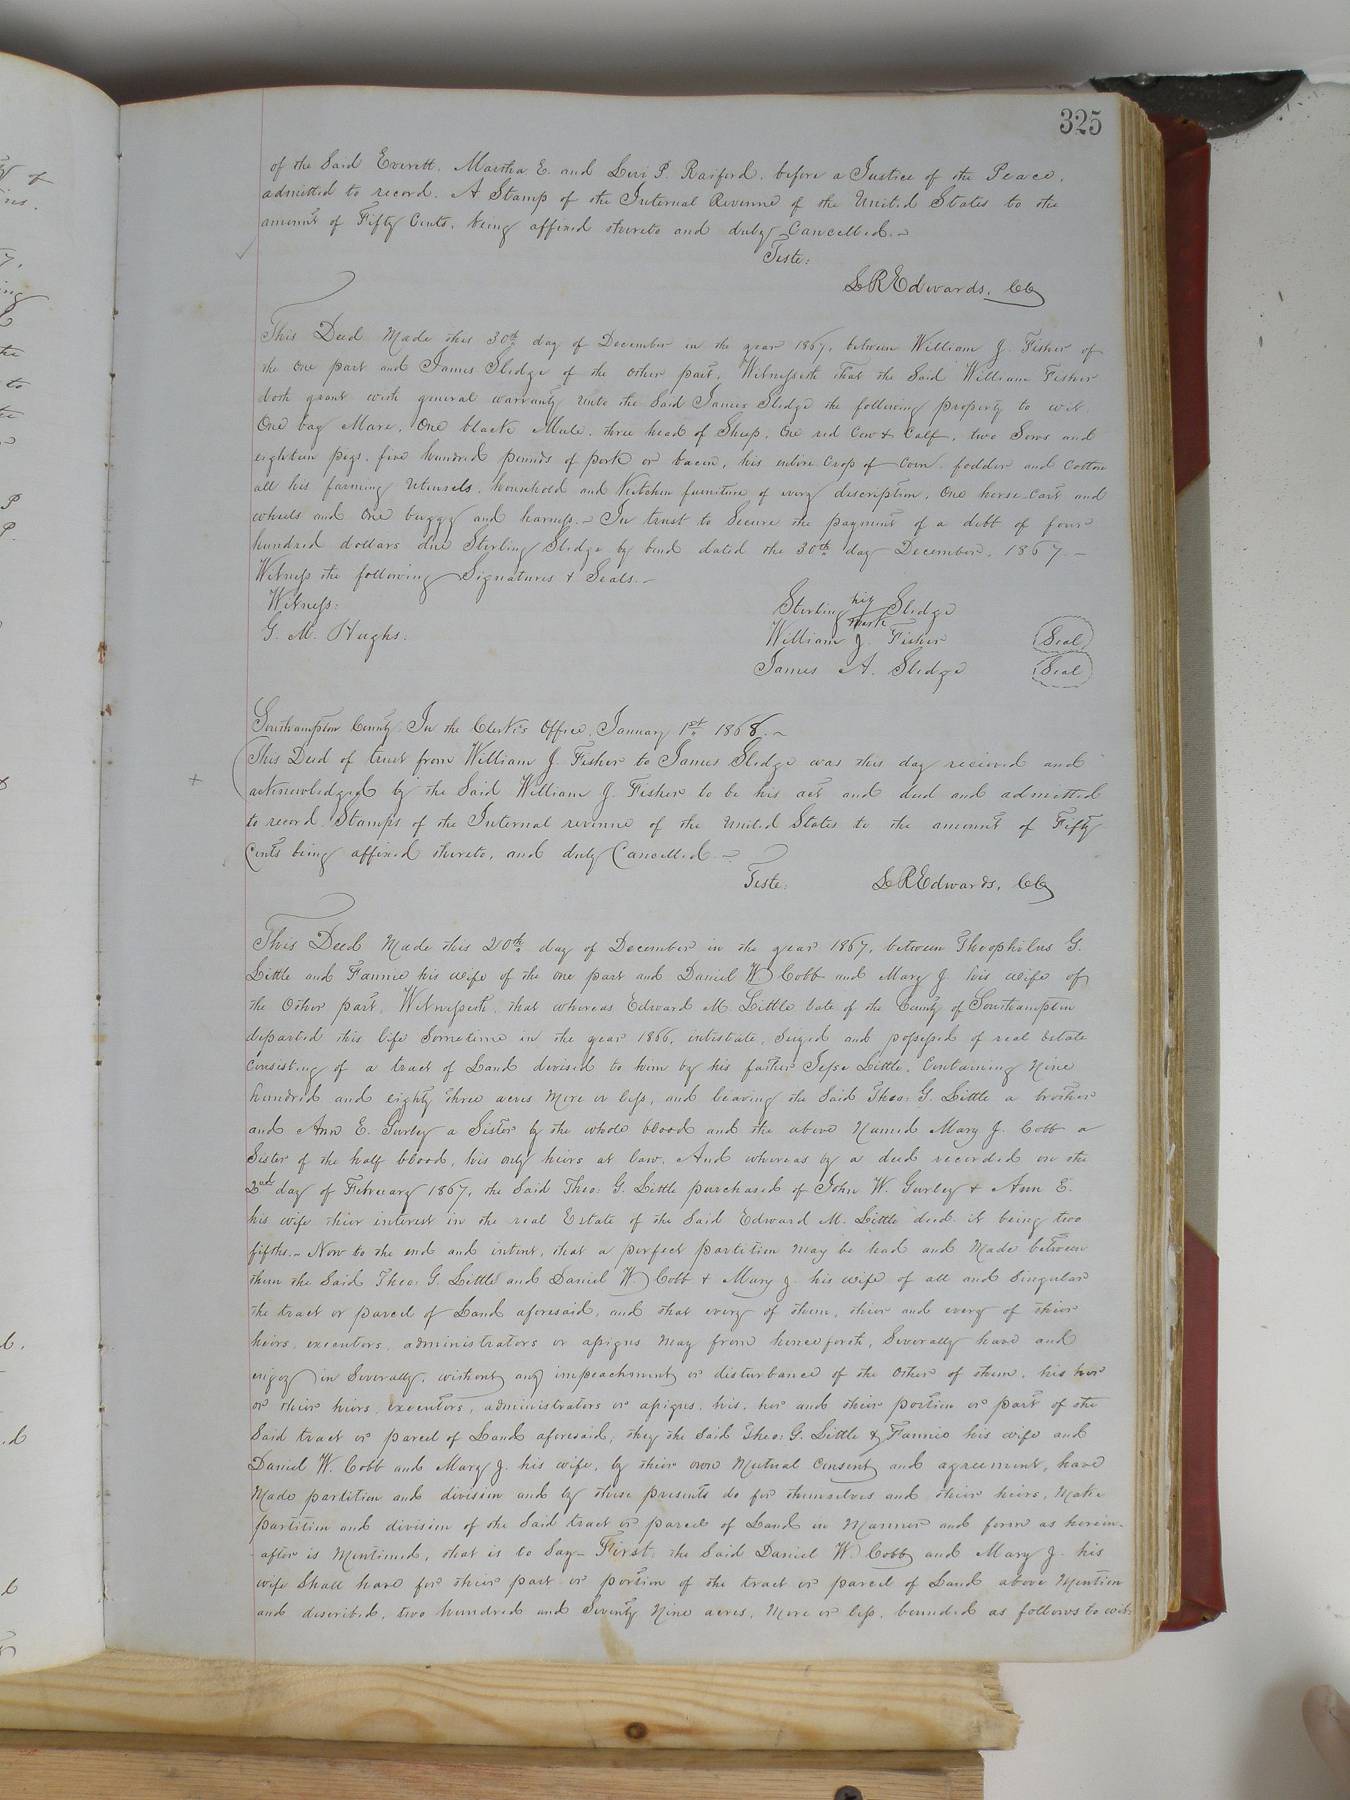 325
of the Said Everett, Martha E. and Levi P. Raiford, before a Justice of the Peace,
admitted to record. A Stamp of the Internal Revenue of the United States to the
amount of Fifty Cents, being affixed thereto and duly Cancelled.~
Teste:
L R Edwards, CC
This Deed Made this 30th day of December in the year 1867, between William J. Fisher of
the One part and James Sledge of the other part, Witnesseth that the Said William Fisher
doth grant with general warranty unto the Said James Sledge the following property to wit.
One bay Mare, One black Mule, three head of Sheep, One red Cow & Calf, two Sows and
eighteen pigs, five hundred pounds of pork or bacon, his entire Crop of Corn, fodder and Cotton
all his farming Utensils, household and Kitchen furniture of every description, One horse Cart and
wheels and One buggy and harness.~ In trust to Secure the payment of a debt of four
hundred dollars due Sterling Sledge by bond dated the 30th day December, 1867.—
Witness the following Signatures & Seals.—
Witness:
G. M. Hughs.
Sterling his mark Sledge
William J. Fisher Seal
James A. Sledge Seal
Southampton County: In the Clerk's Office, January 1st 1868.~
This Deed of trust from William J. Fisher to James Sledge was this day received and
acknowledged by the Said William J. Fisher to be his act and deed and admitted
to record. Stamps of the Internal revenue of the United States to the amount of Fifty
Cents being affixed thereto, and duly Cancelled.~
Teste: L R Edwards, CC
This Deed Made this 20th day of December in the year 1867, between Theophilus G.
Little and Fannie his wife of the one part and Daniel W Cobb and Mary J. his wife of
the Other part, Witnesseth, that whereas Edward M. Little late of the County of Southampton
departed this life Sometime in the year 1866, intestate, Seized and possessed of real Estate
Consisting of a tract of Land devised to him by his father Jesse Little, Containing Nine
hundred and eighty three acres More or less, and leaving the Said Theo: G. Little a brother
and Ann E. Gurley a Sister by the whole blood and the above Named Mary J. Cobb a
Sister of the half blood, his only heirs at law. And whereas by a deed recorded on the
2nd day of February 1867, the Said Theo: G. Little purchased of John W. Gurley & Ann E.
his wife their interest in the real Estate of the Said Edward M. Little decd. it being two
fifths.~ Now to the end and intent, that a perfect partition May be had and Made between
them the Said Theo: G. Little and Daniel W Cobb & Mary J. his wife of all and Singular
the tract or parcel of Land aforesaid, and that every of them, their and every of their
heirs, executors, administrators or assigns May from henceforth, Severally have and
enjoy in Severalty, without any impeachment or disturbance of the Other of them, his her
or their heirs, executors, administrators or assigns, his, her and their portion or part of the
Said tract or parcel of Land aforesaid, they the Said Theo: G. Little & Fannie his wife and
Daniel W. Cobb and Mary J. his wife, by their own Mutual Consent and agreement, have
Made partition and division and by these presents do for themselves and their heirs, Make
partition and division of the Said tract or parcel of Land in Manner and form as herein-
after is Mentioned, that is to Say— First, the Said Daniel W. Cobb and Mary J. his
wife Shall have for their part or portion of the tract or parcel of Land above Mention
and described, two hundred and Seventy Nine acres, More or less, bounded as follows to wit: